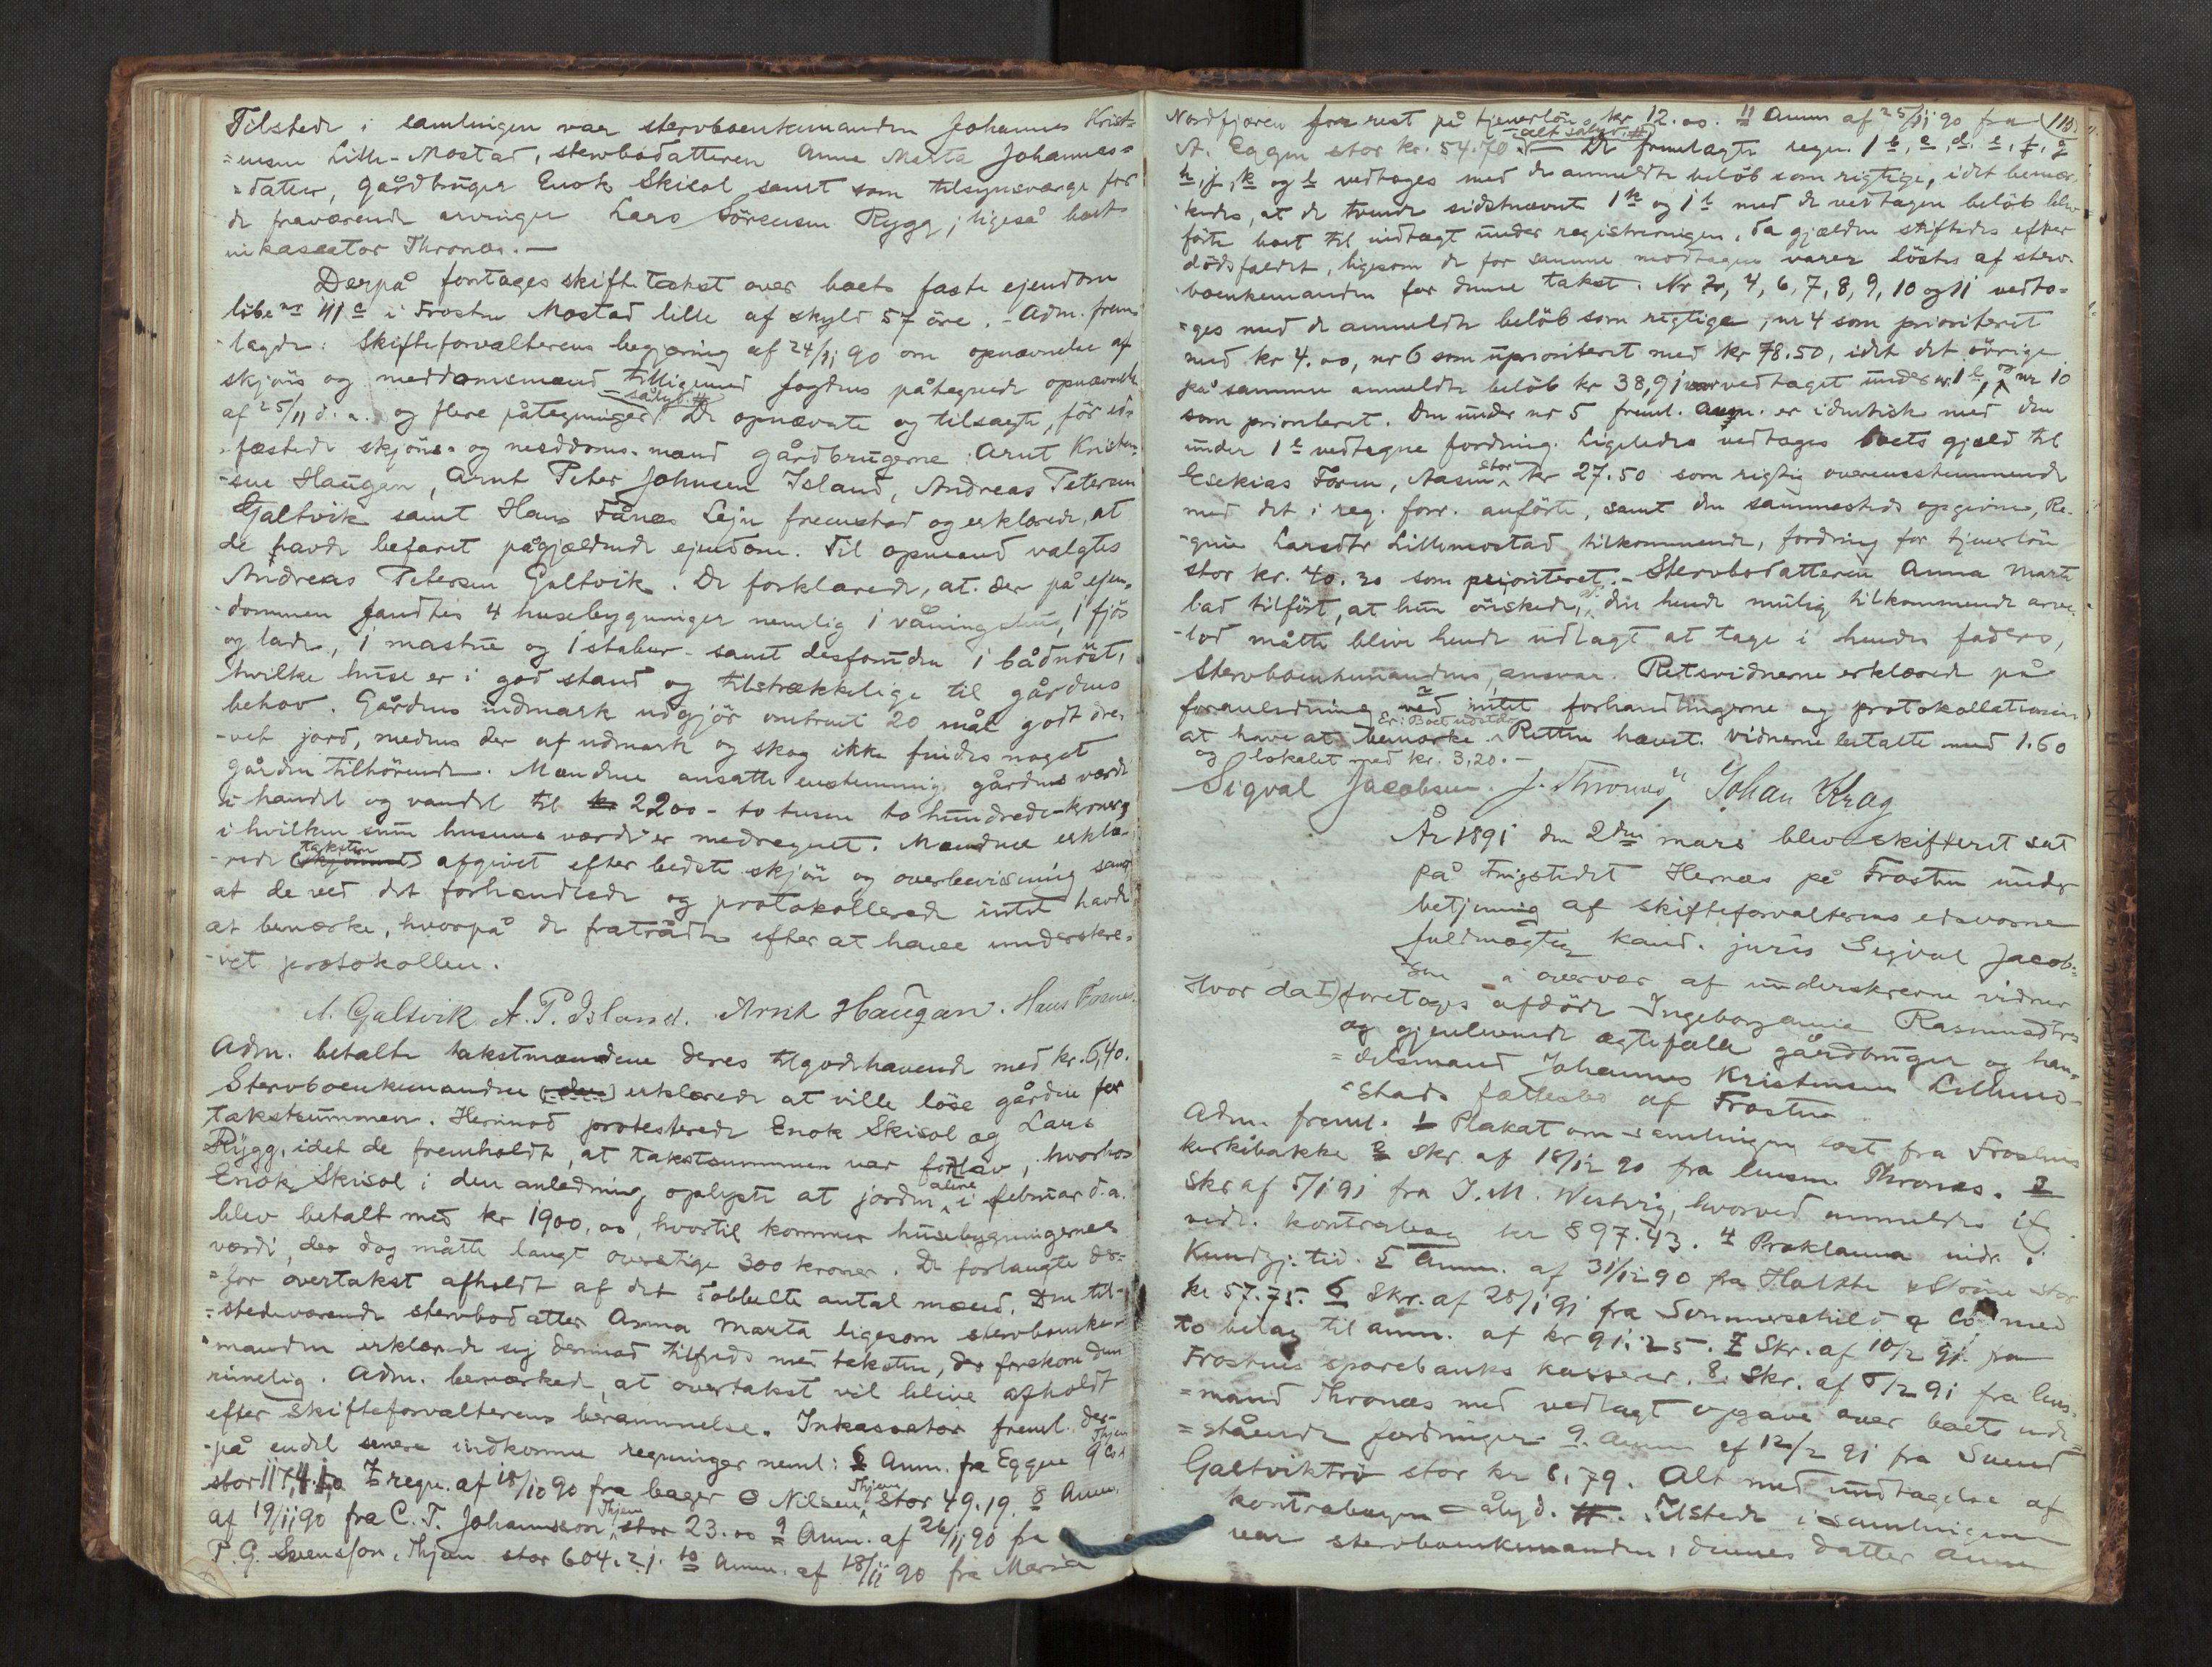 Tilstede i samlingen var stervboenkemanden Johannes Krist=
=ensen Lille-Mostad, stervbodatteren Anna Marta Johannes=
=datter, gårdbruger Enok Skisol samt som tilsynsværge for
de fraværende arvinger Lars Sörensen Rygg; ligeså boets
inkassator Thronæs.—
Derpå foretages skiftetakst over boets faste ejendom
löbe nr 41 c i Frosten Mostad lille af skyld 57 öre. - Adm. frem-
lagde: Skifteforvalterens begjæring af 24/11 90 om opnævnelse af
skjöns og meddomsmænd tilligemed fogdens påtegnede opnævnelse
af 25/11 d. a. og flere påtegninger - sålyd. # De opnævnte og tilsagte, för eds
fæstede skjöns- og meddoms-mænd gårdbrugerne: Arnt Kristen-
-sen Haugan, Arnt Peter Johnsen Island, Andreas Petersen
Galtvik samt Hans Fånes Lejn fremstod og erklærede, at
de havde befaret pågjældende ejendom. Til opmand valgtes
Andreas Petersen Galtvik. De forklarede, at der på ejen-
-dommen fandtes 4 husebygninger nemlig 1 våningshus, 1 fjös
og lade, 1 mastue og 1 stabur - samt desforuden 1 bådnöst,
hvilke huse er i god stand og tilstrækkelige til gårdens
behov. Gårdens indmark udgjör omtrent 20 mål godt dre-
-vet jord, medens der af udmark og skog ikke findes noget
gården tilhörende. Mændene ansatte enstemmig gårdens værdi
i handel og vandel til kr 2200 - to tusen to hundrede - kroner,
i hvilken sum husenes værdi er medregnet. Mændene erklæ-
-rede taksten (skjönnet) afgivet efter bedste skjön og overbevisning samt
at de ved det forhandlede og protokollerede intet havde
at bemærke, hvorpå de fratrådte efter at have underskre-
-vet protokollen.
A. Galtvik A. P. Island. Arnt Haugan. Hans Fånes
Adm. betalte takstmændene deres tilgodehavende med kr. 6,40.
Stervboenkemanden erklærede at ville löse gården for
takstsummen. Herimod protesterede Enok Skisol og Lars
Rygg, idet de fremholdt, at takstsummen var for lav, hvorhos
Enok Skisol i den anledning oplyste at jorden alene i februar d. a.
blev betalt med kr 1900,oo, hvortil kommer husebygningernes
værdi, der dog måtte langt overstige 300 kroner. De forlangte der=
=for overtakst afholdt af det dobbelte antal mænd. Den til-
-stedeværende stervbodatter Anna Marta ligesom stervboenke-
-manden erklærede sig derimod tilfreds med taksten, der forekom dem
rimelig. Adm. bemærkede, at overtakst vil blive afholdt
efter skifteforvalterens berammelse. Inkassator freml. der-
-på endel senere indkomne regninger neml: 6 Anm. fra Eggen & Co Thjem
stor 1174.50 7 regn. af 18/10 90 fra bager O Nilsen Thjem stor 49.19. 8 Anm.
af 19/11 90 fra C. T. Johannsson, Thjem stor 23.00 9 Anm. af 26/11 90 fra
P. G. Svensson, Thjem stor 604.21. 10 Anm. af 18/11 90 fra Maria
Nordfjæren for rest på tjenerlön kr 12.00. 11 Anm af 25/11 90 fra (118)
A. Eggen stor kr. 54.70. - alt sålyd. # De fremlagte regn. 1 b, c, d, e, f, g
h, j, k og l vedtages med de anmeldte belöb som rigtige, idet bemær-
-kedes, at de tvende sidstnævnte 1 k og 1 l med de vedtagne belöb blev
förte boet til indtægt under registreringen, da gjælden stiftedes efter
dödsfaldet, ligesom de for samme modtagne varer löstes af sterv-
-boenkemanden for denne takst. Nr 2, 4, 6, 7, 8, 9, 10 og 11 vedta-
=ges med de anmeldte belöb som rigtige, nr 4 som prioriteret
med kr 4.00, nr 6 som uprioriteret med kr 78.50, idet det övrige
på samme anmeldte belöb kr 38,91 var vedtaget under nr. 1 l, og nr 10
som prioriteret. Den under nr 5 freml. anm. er identisk med den
under 1 e vedtagne fordring. Ligeledes vedtages boets gjæld til
Esekias Foren, Aasen stor kr 27.50 som rigtig overensstemmende
med det i reg. forr. anförte, samt den sammesteds opgivne, Re-
-gine Larsdtr Lillemostad tilkommende, fordring for tjenerlön
stor kr. 40.20 som prioriteret. - Stervbodatteren Anna Marta
lod tilfört, at hun önskede, at den hende mulig tilkommende arve-
-lod måtte blive hende udlagt at tage i hendes faders,
stervboenkemandens, ansvar. Retsvidnerne erklærede på
foranledning ved intet forhandlingerne og protokollationen
at have at bemærke. Er: Boet udstedt Retten hævet. Vidnerne betalte med 1.60
og lokalet med kr. 3,20. -
Sigval Jacobsen. J. Thronæs Johan Krag
År 1891 den 2den mars blev skifteret sat
på tingstedet Hernæs på Frosten under
betjening af skifteforvalterens edsvorne
fuldmægtig kand. juris Sigval Jacob=
sen i overvær af underskrevne vidner
Hvor da I) foretages afdöde Ingeborganna Rasmusdtrs
og gjenlevende ægtefælle gårdbruger og han-
=delsmand Johannes Kristensen Lillemo-
-stads fællesbo af Frosten
Adm. freml. 1 Plakat om samlingen læst fra Frostens
kirkebakke 2 Skr. af 18/12 90 fra lensm. Thronæs. 3
Skr af 5/1 91 fra J. M. Westvig, hvorved anmeldes ifg
vedl. kontrabog kr 897.43. 4 Proklama indr. i
Kundgj. tid. 5 Anm. af 31/12 90 fra Halseth & Störe stor
kr 57.75. 6 Skr. af 28/1 91 fra Sommerschild & Co med
to bilag til anm. af kr 91.25. 7 Skr. af 10/2 91 fra
Frostens sparebanks kasserer. 8. Skr. af 5/2 91 fra lens-
=mand Thronæs med vedlagt opgave over boets ude=
=stående fordringer. 9. Anm af 12/2 91 fra Svend
Galtviktrö stor kr 6,79. Alt med undtagelse af
kontrabogen sålyd. #. Tilstede i samlingen
var stervboenkemanden, dennes datter Anna